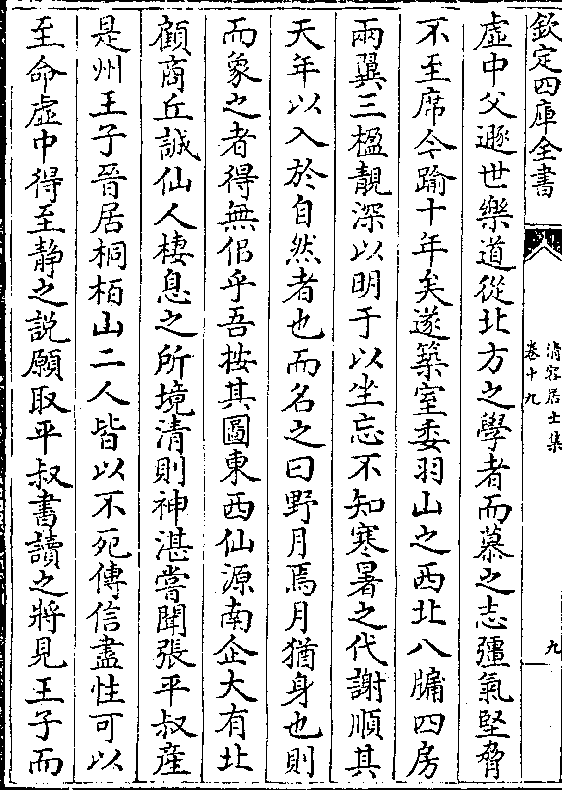 欽定四庫全書
清容居士集
卷十九
九
虛中父遯世樂道從北方之學者而慕之志彊氣堅脅
不至席今踰十年矣遂築室委羽山之西北八牖四房
兩翼三楹靚深以明于以坐忘不知寒暑之代謝順其
天年以入於自然者也而名之曰野月焉月猶身也則
而象之者得無侣乎吾按其圖東西仙源南企大有北
顧商丘誠仙人棲息之所境清則神湛嘗聞張平叔産
是州王子晉居桐栢山二人皆以不死傳信盡性可以
至命虛中得至静之説願取平叔書讀之將見王子而